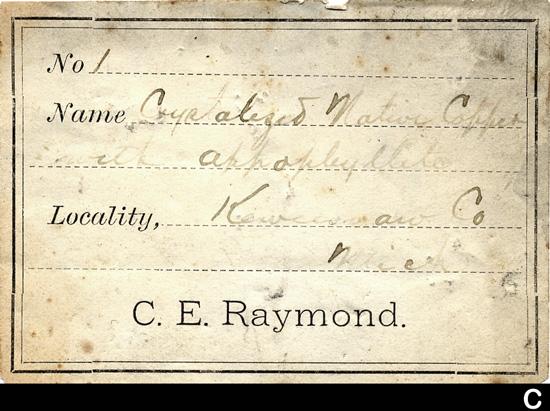 No 1
Name Crystalized Native Copper
with appophyllite
Locality, Keweenaw Co
Mich
C. E. Raymond.
C